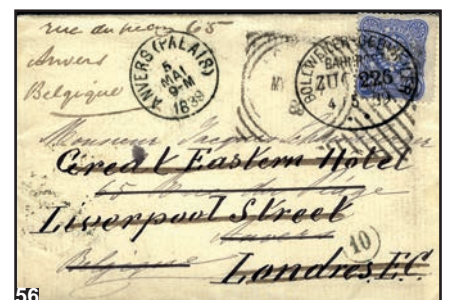 rue du 65
Anvers
Belgique
ANVERS (PALAIS)
5
MAI
9-M
1889
BOLLWEILER-GEBWEILER
BAHNPOST
ZUG 226
4 5
Monsieur
Great Eastern Hotel
65 Rue du
Liverpool Street
Anvers
10
Belgique
Londres E.C.
56